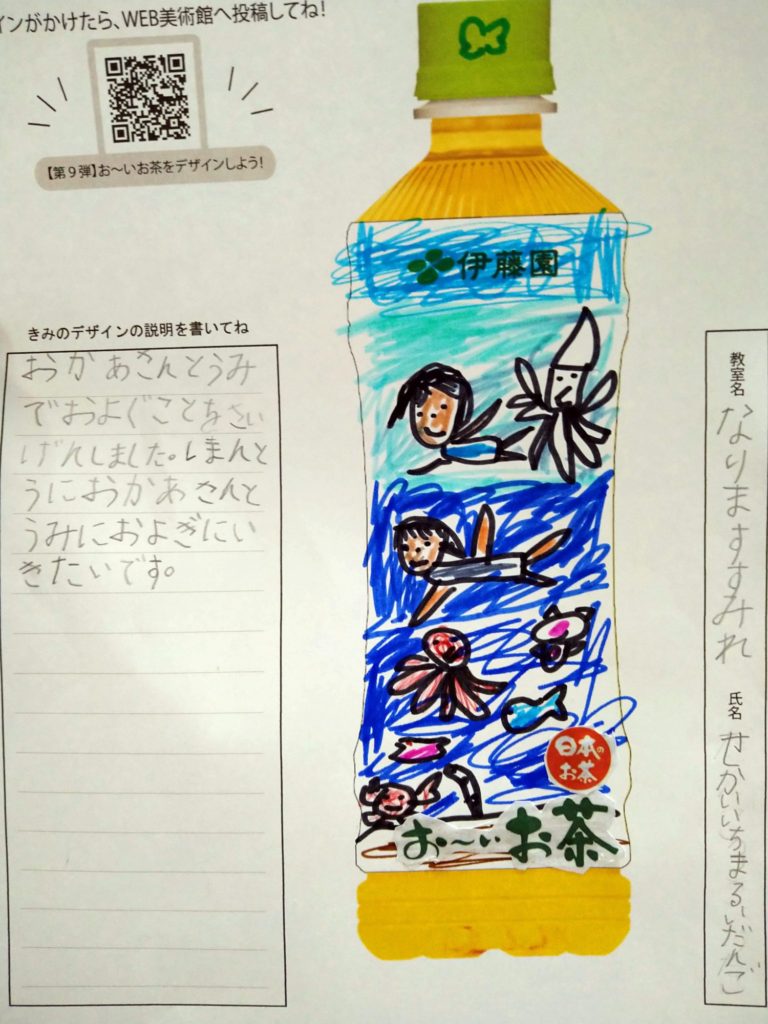 インがかけたら、WEB美術館へ投稿してね!
【第9弾】お〜いお茶をデザインしよう!
伊藤園
きみのデザインの説明を書いてね
おかあさんとうみ
でおよぐことをさい
げんしました。しまんと
うにおかあさんと
うみにおよぎにい
きたいです。
日本の
お茶
お〜いお茶
教室名
なりますすみれ
氏名
せかいいちまるいだんご